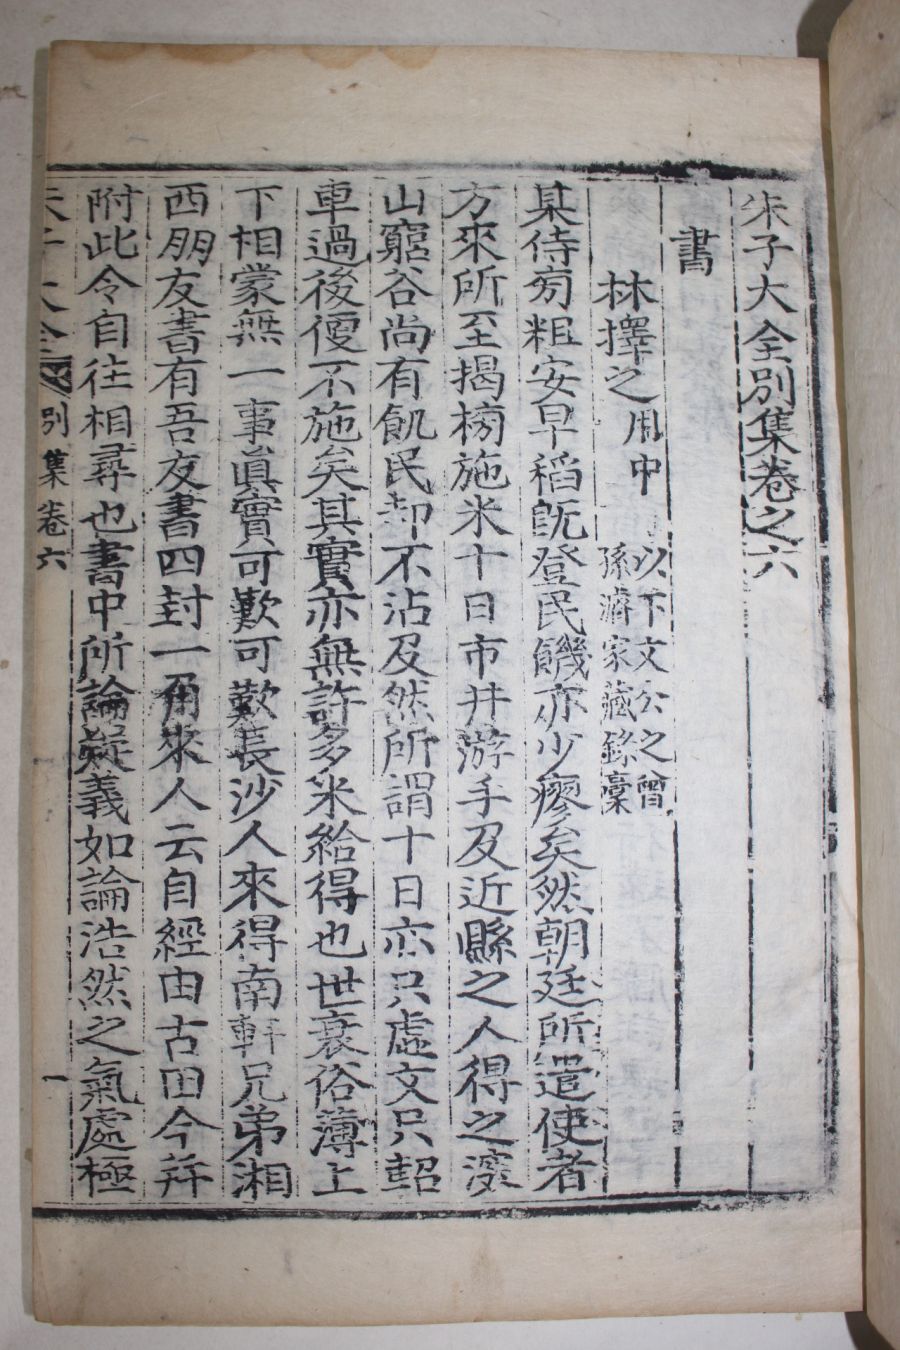 朱子大全別集卷之六
書
林擇之用中 以下文公之曾
孫濬家藏錄稾
某侍旁粗安早稻旣登民饑亦少廖矣然朝廷所遣使者
方來所至揭榜施米十日市井游手及近縣之人得之深
山窮谷尚有飢民却不沾及然所謂十日亦只虛文只軺
車過後便不施矣其實亦無許多米給得也世衰俗薄上
下相蒙無一事眞實可歎可歎長沙人來得南軒兄弟湘
西朋友書有吾友書四封一角來人云自經由古田今幷
附此令自往相尋也書中所論疑義如論浩然之氣處極
朱子大全 別集卷六 一